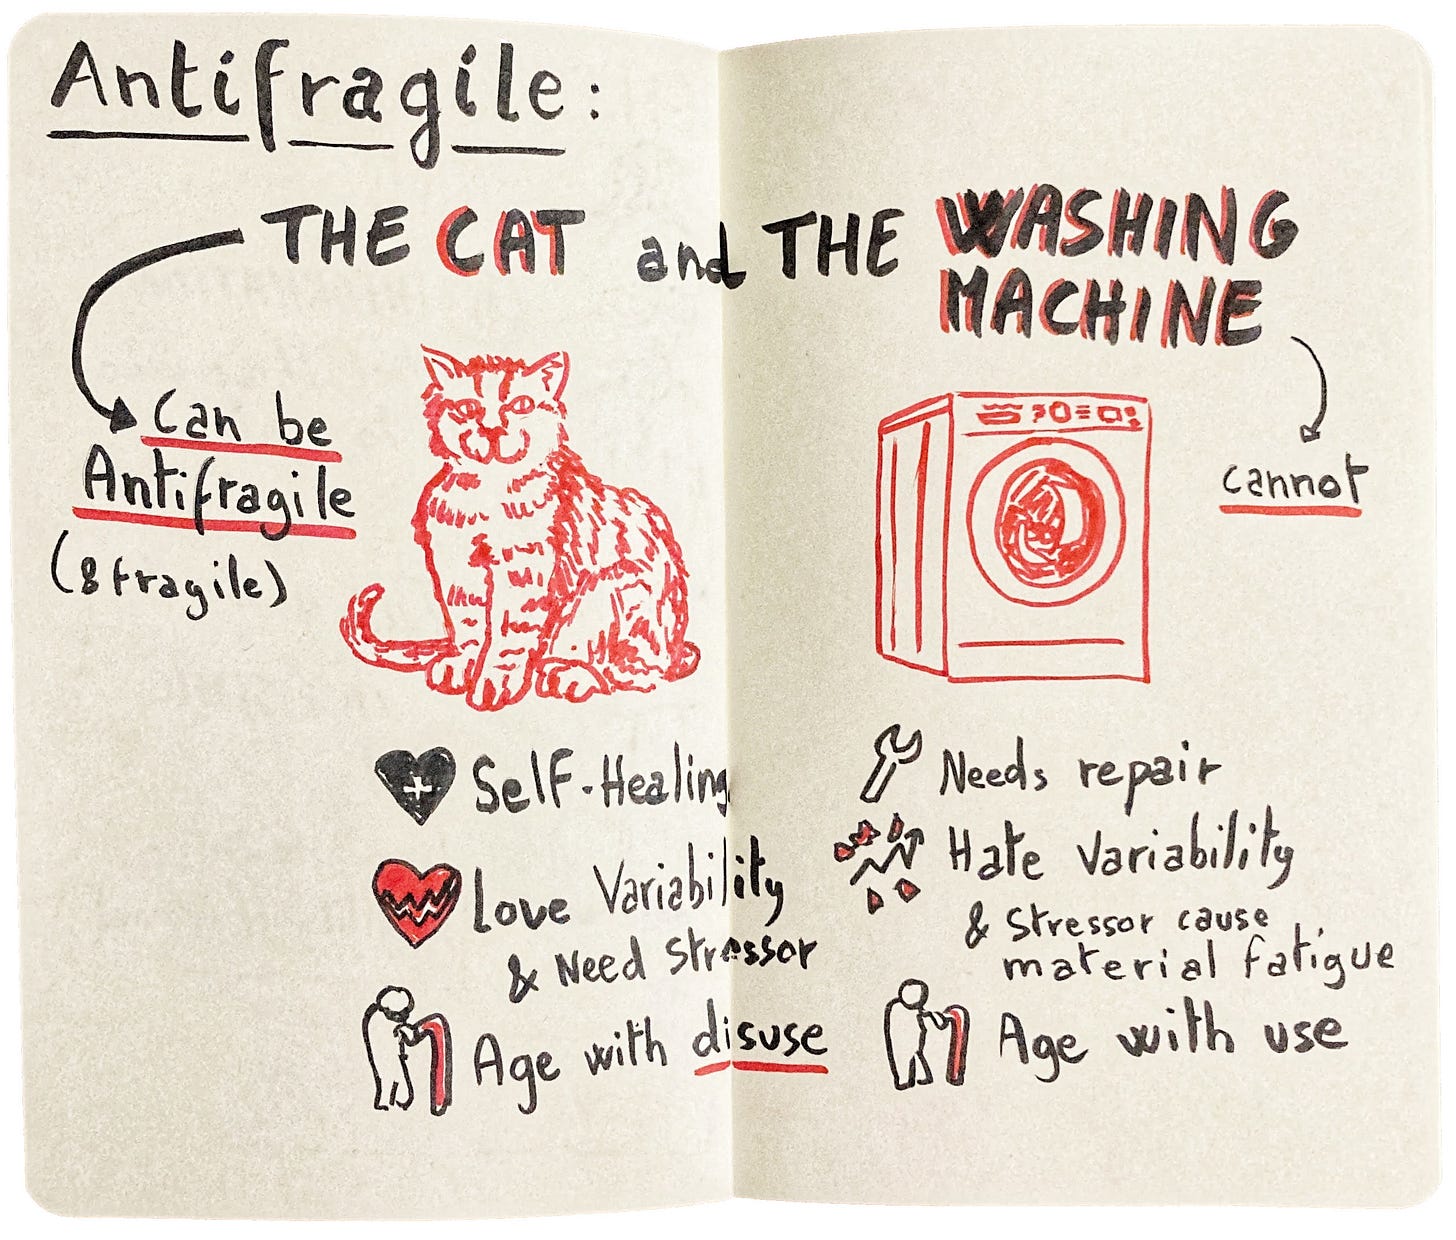 Antifragile:
THE CAT and THE WASHING
MACHINE
Can be
Antifragile
(& fragile)
cannot
Self-Healing
Love Variability
& Need Stressor
Age with disuse
Needs repair
Hate Variability
& Stressor cause
material fatigue
Age with use